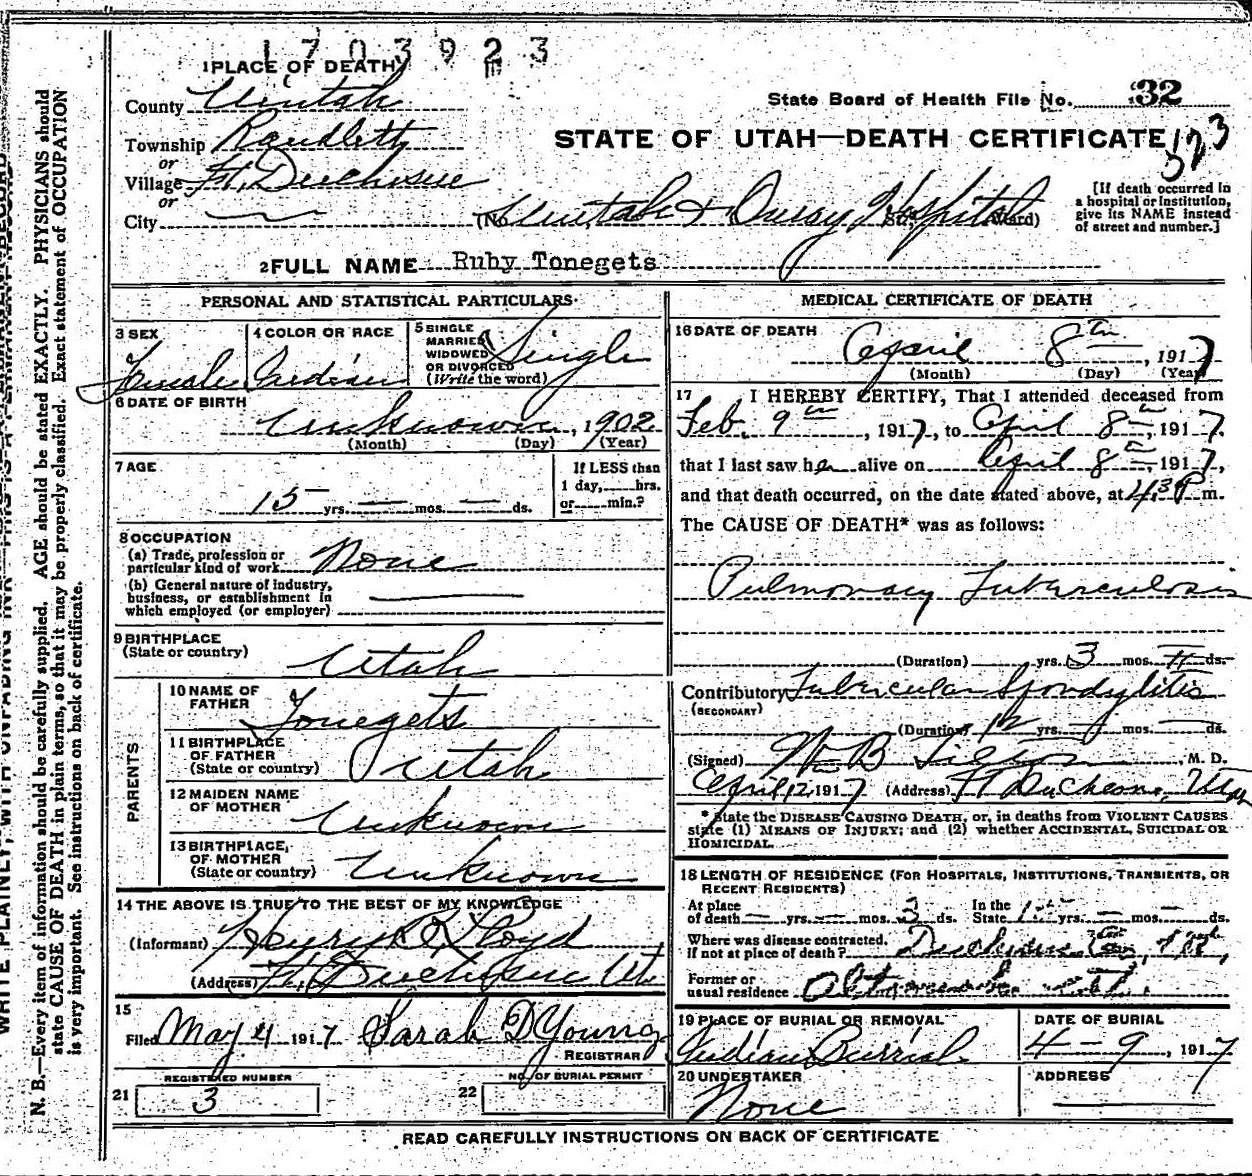 1703923
1 PLACE OF DEATH
County Uintah
State Board of Health File No. 32
Township Randlett
STATE OF UTAH—DEATH CERTIFICATE 323
or
Village Ft. Duchesne
or
City
(No. Uintah & Ouray Hospital St. Ward)
[If death occurred in
a hospital or institution,
give its NAME instead
of street and number.]
2 FULL NAME Ruby Tonegets
PERSONAL AND STATISTICAL PARTICULARS
3 SEX
Female
4 COLOR OR RACE
Indian
5 SINGLE
MARRIED
WIDOWED
OR DIVORCED
(Write the word)
Single
6 DATE OF BIRTH
Unknown, 1902
(Month) (Day) (Year)
7 AGE
15 yrs. — mos. — ds.
If LESS than
1 day, hrs.
or min.?
8 OCCUPATION
(a) Trade, profession or
particular kind of work None
(b) General nature of industry,
business, or establishment in
which employed (or employer)
9 BIRTHPLACE
(State or country)
Utah
PARENTS
10 NAME OF
FATHER
Tonegets
11 BIRTHPLACE
OF FATHER
(State or country) Utah
12 MAIDEN NAME
OF MOTHER
Unknown
13 BIRTHPLACE
OF MOTHER
(State or country) Unknown
14 THE ABOVE IS TRUE TO THE BEST OF MY KNOWLEDGE
(Informant) Henry R Lloyd
(Address) Ft. Duchesne Ut.
15
Filed May 4 1917 Sarah D Young
REGISTRAR
REGISTERED NUMBER
21 3
NO. OF BURIAL PERMIT
22
MEDICAL CERTIFICATE OF DEATH
16 DATE OF DEATH
April 8th, 1917
(Month) (Day) (Year)
17 I HEREBY CERTIFY, That I attended deceased from
Feb. 9th, 1917, to April 8th, 1917.
that I last saw her alive on April 8th, 1917,
and that death occurred, on the date stated above, at P m.
The CAUSE OF DEATH* was as follows:
Pulmonary Tuberculosis
(Duration) yrs. 3 mos. ds.
Contributory Tubercular Spondylitis
(SECONDARY)
(Duration) 12 yrs. — mos. — ds.
(Signed) Wm B M. D.
April 12, 1917 (Address) Ft Duchesne, Utah
* State the DISEASE CAUSING DEATH, or, in deaths from VIOLENT CAUSES
state (1) MEANS OF INJURY; and (2) whether ACCIDENTAL, SUICIDAL OR
HOMICIDAL.
18 LENGTH OF RESIDENCE (FOR HOSPITALS, INSTITUTIONS, TRANSIENTS, OR
RECENT RESIDENTS)
At place
of death — yrs. — mos. 3 ds.
In the
State 15 yrs. — mos. — ds.
Where was disease contracted,
if not at place of death? Duchesne
Former or
usual residence
19 PLACE OF BURIAL OR REMOVAL
Indian Burrial
DATE OF BURIAL
4-9, 1917
20 UNDERTAKER
None
ADDRESS
READ CAREFULLY INSTRUCTIONS ON BACK OF CERTIFICATE
N. B.—Every item of information should be carefully supplied. AGE should be stated EXACTLY. PHYSICIANS should
state CAUSE OF DEATH in plain terms, so that it may be properly classified. Exact statement of OCCUPATION
is very important. See instructions on back of certificate.